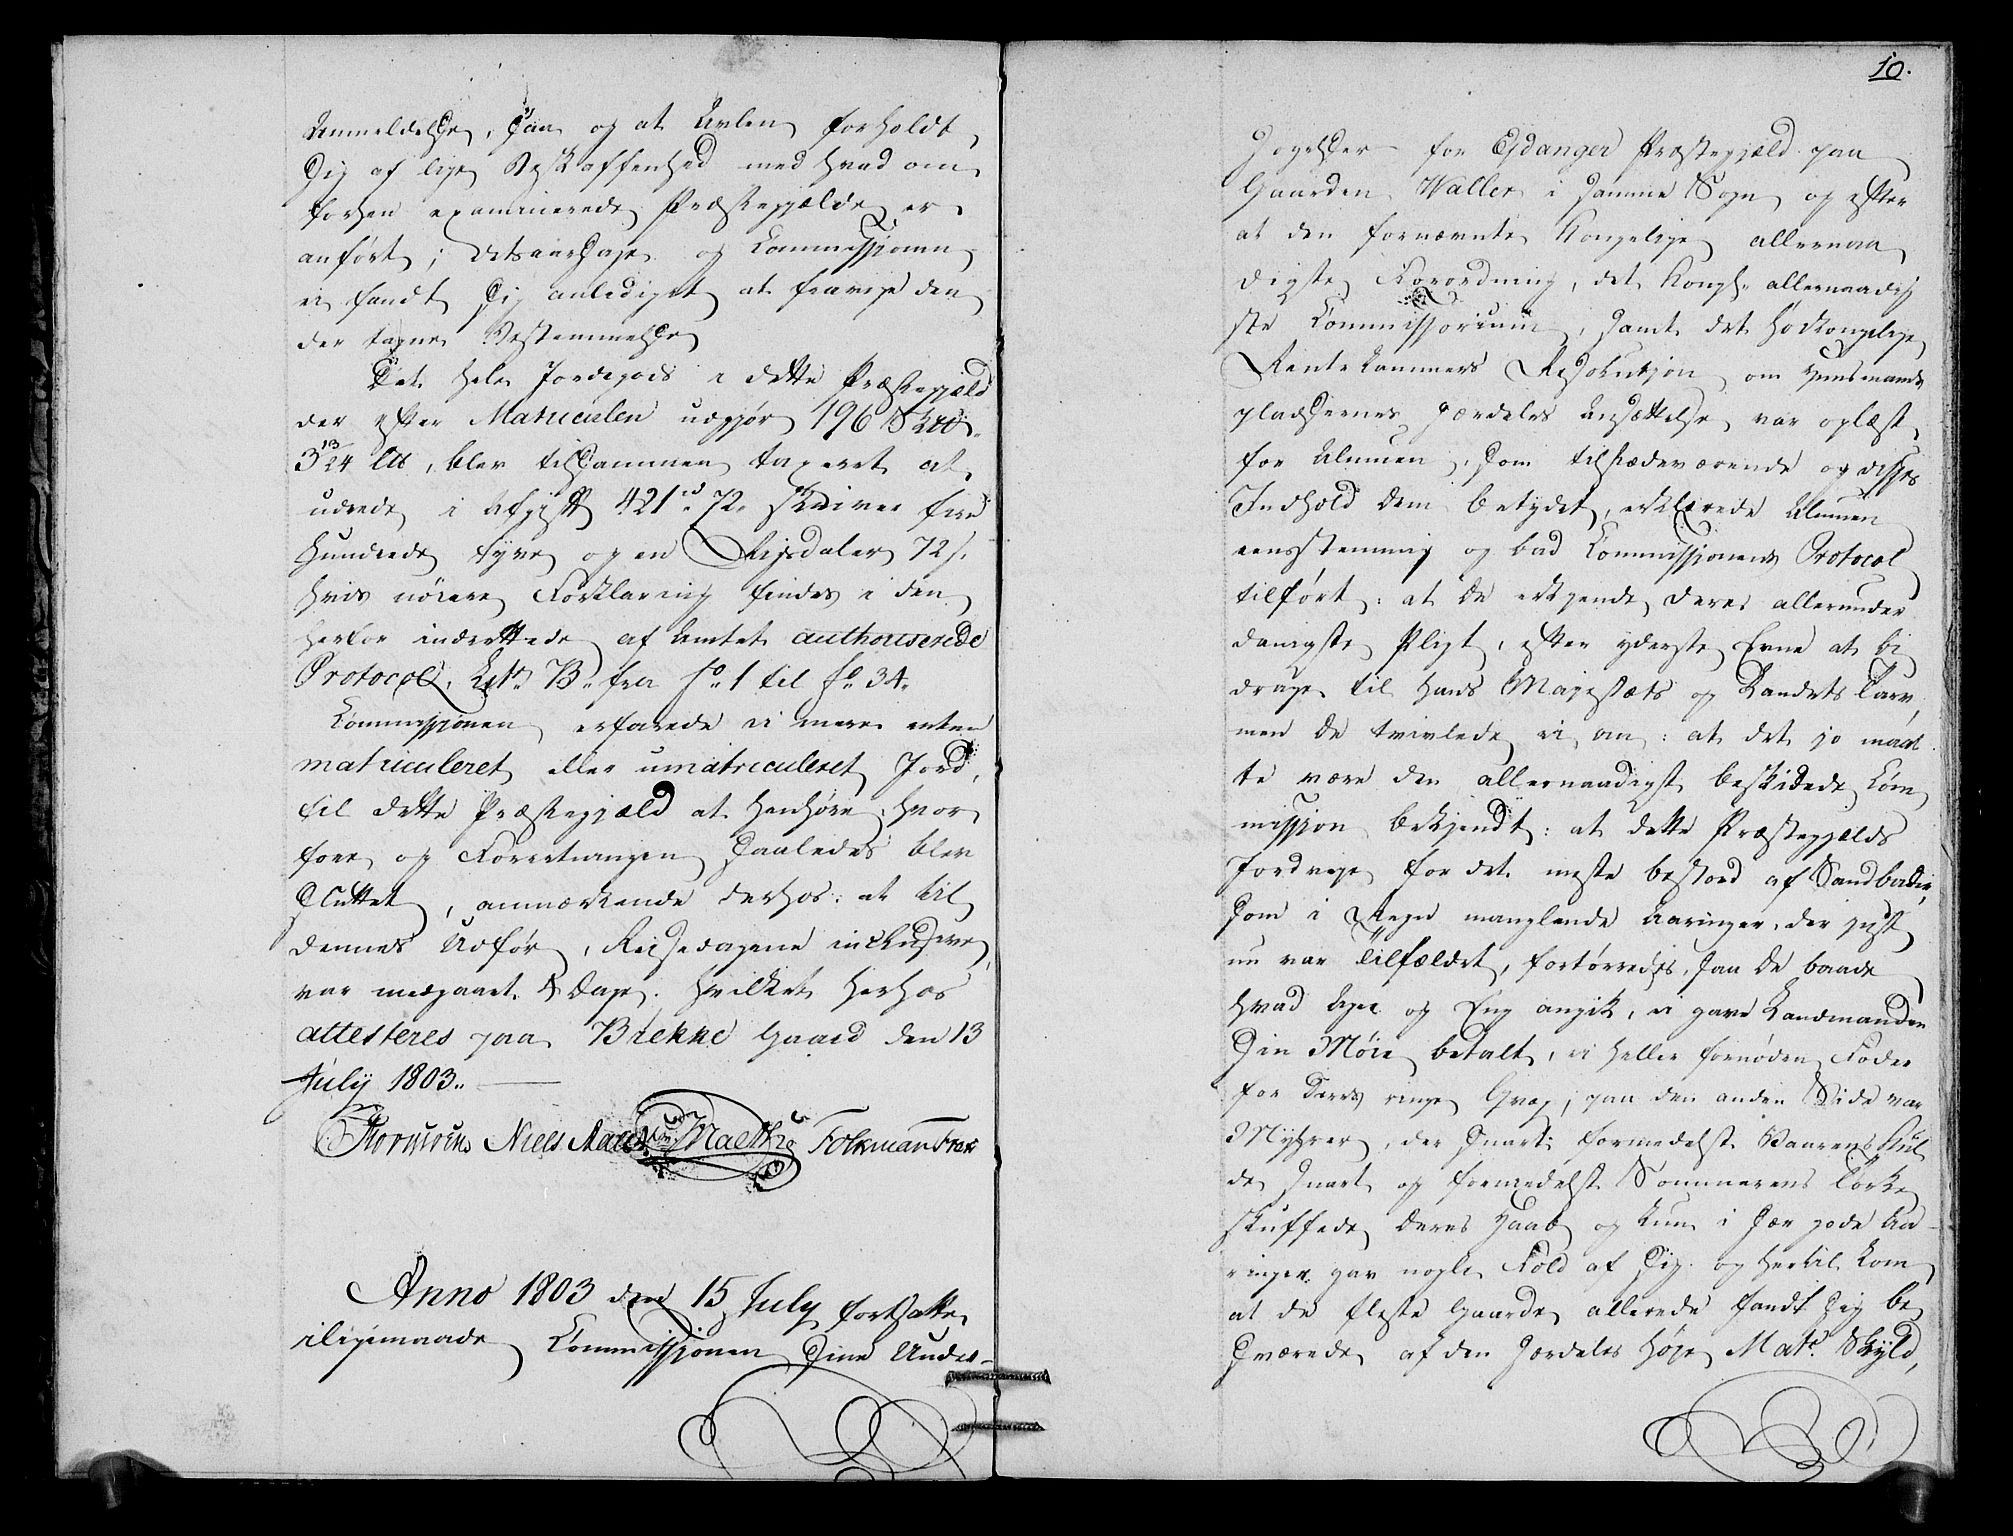 Anmeldelse, saa og at Avlen forholdt
sig af lige Beskaffenhed med hvad om
forhen examinerede Præstegjælde er
anført; detsaarsage og Commissjonen
ei fandt sig anlediget at fravige den
der tagne Bestemmelse
Det hele Jordegods i dette Præstegjæld
der efter Matriculen udgjør 196 Skd
3 13/24 Lb, blev tilsammen taxeret at
udrede i Afgift 421 rd 72 skriver fire
Hundrede tyve og en Rigsdaler 72 s.
hvis nöiere Forklaring findes i den
herfor indrettede af Amtet authoriserede
Protocol, Litr. B. fra fo. 1 til fo. 34.
Commissjonen erfarede ei mere enten
matriculeret eller umatriculeret Jord,
til dette Præstegjæld at henhøre, hvor
fore og Forretningen saaledes blev
sluttet, anmærkende derhos: at til
dennes Udfør, Reisedagene inclusive,
var medgaaet 4 Dage. Hvilket herhos
attesteres paa Brekke Gaard den 13
July 1803.
Niels Aall Folkman
Anno 1803 den 15 July fortsatte
iligemaade Commissjonen sine Under-
10.
søgelser for Ejdanger Præstegjæld paa
Gaarden Waller i samme Sogn, og efter
at den fornævnte Kongelige allernaa
digste Forordning, det Kongl. allernaadig
ste Commissorium, samt det høikongelige
Rentekammers Resolution om Huusmands
pladsernes særdeles Ansættelse var oplæst
for Almuen, som tilstædeværende og disses
Indhold dem betydet, erklærede Almuen
eensstemmig og bad Commissionens Protocol
tilført: at de erkjende deres allerunder
danigste Pligt, efter yderste Evne at bi
drage til Hans Majestæts og Landets Tarv,
men de tvivlede ei om: at det jo maat
te være den allernaadigst beskikede Com
mission bekjendt: at dette Præstegjelds
Jordveje for det meste bestod af Sandbakker,
som i Regn manglende Aaringer, der just
nu var Tilfældet, fortørredes, saa de baade
hvad Ager og Eng angik, ei gave Landmanden
sin Møie betalt, ei heller fornøden Foder
for deres ringe Qvæg; paa den anden Side var
Myhrer, der snart formedelst Vaarens Kul
de, snart og formedelst Sommerens Tørke
skuffede deres Haab og kun i sær gode Aa
ringer gav nogle Fold af sig og hertil kom
at de fleste Gaarde allerede fandt sig be
sværede af den særdeles høje Mat. Skyld,